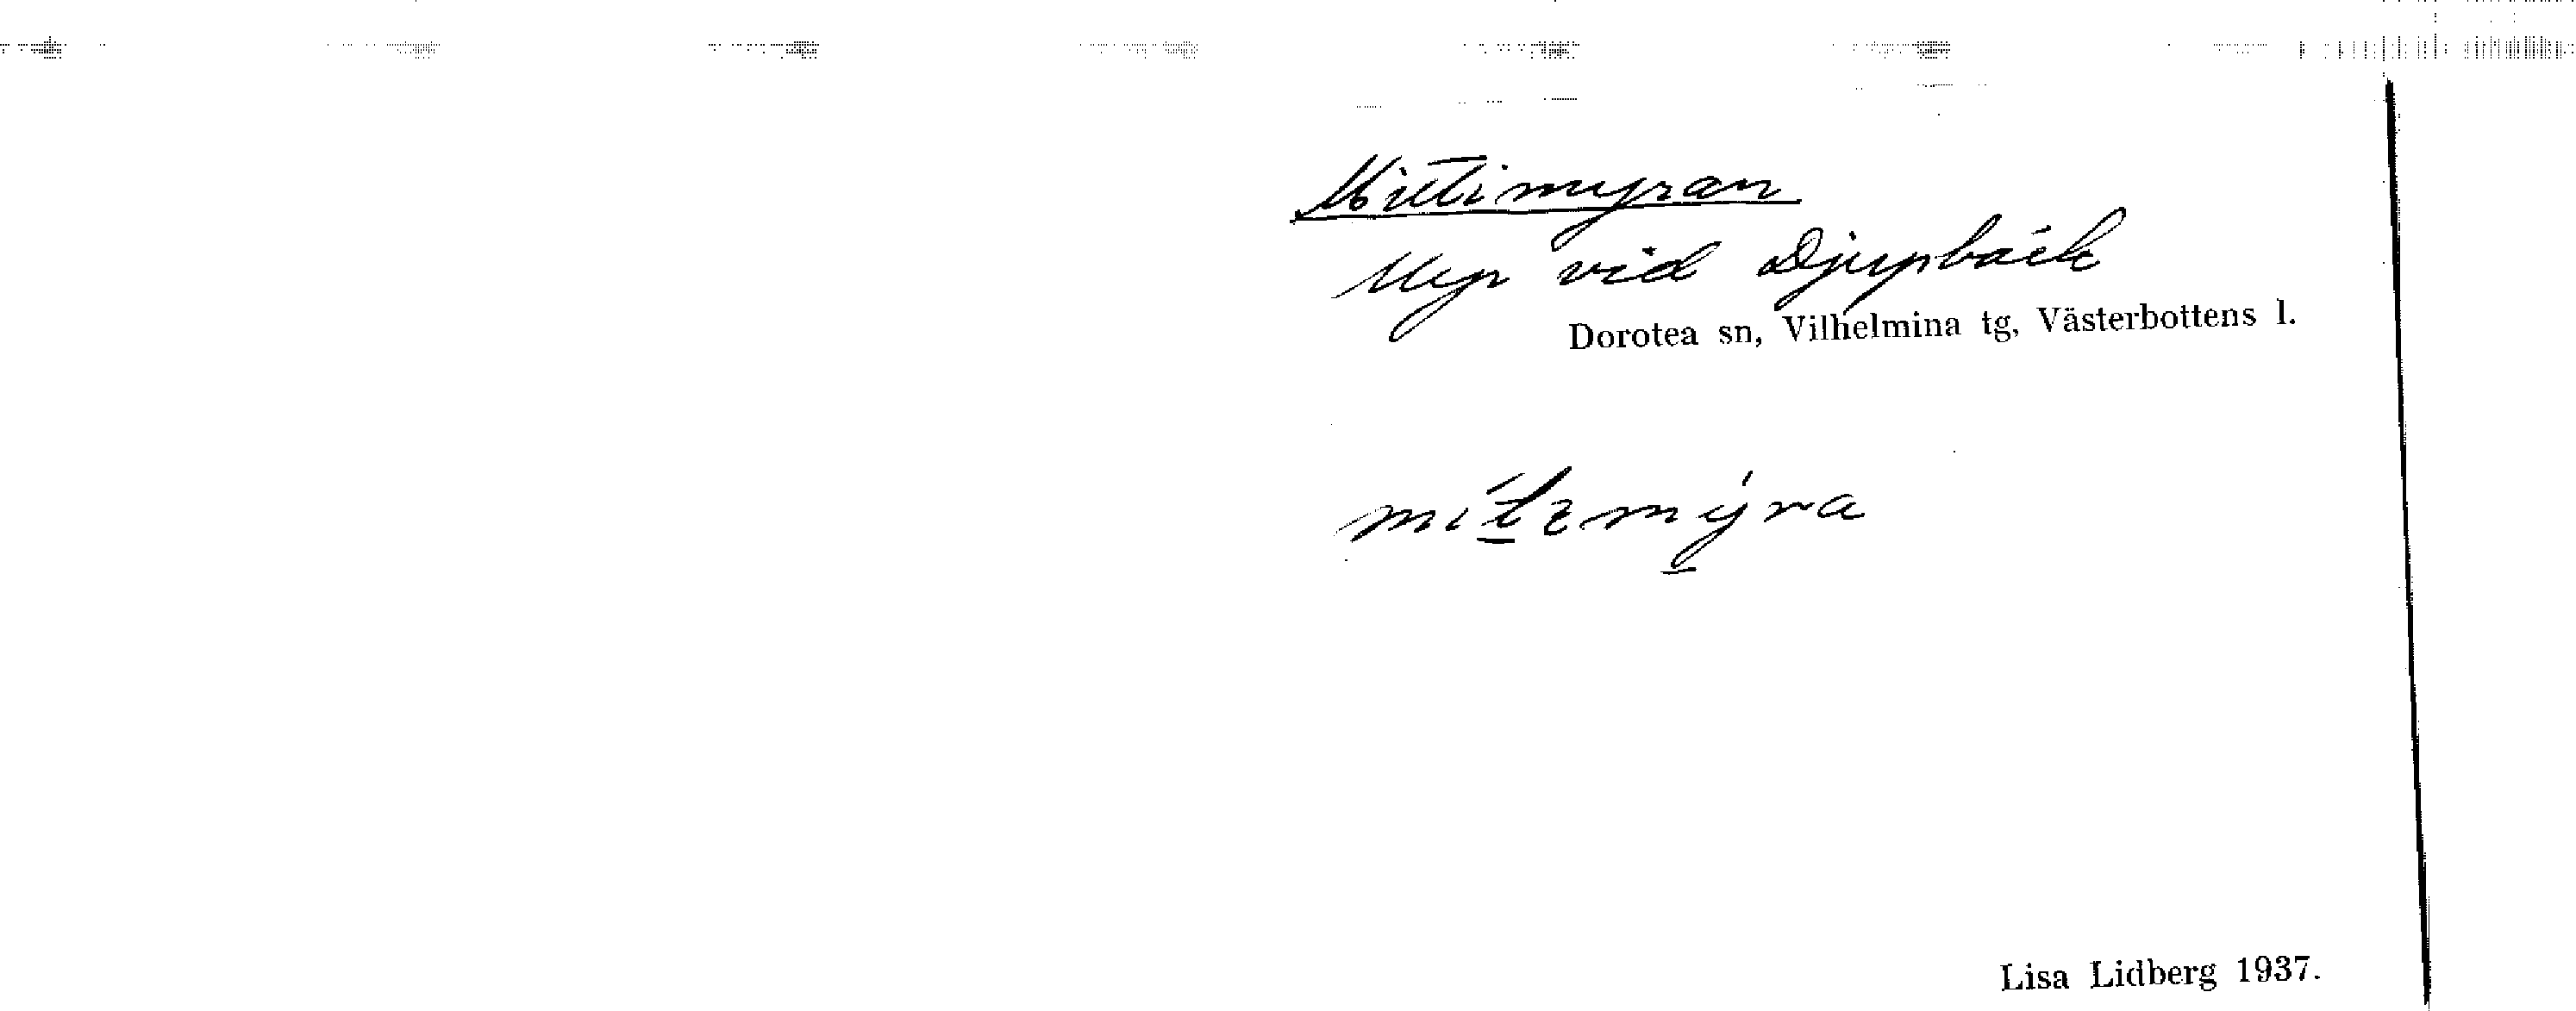 Mittimyran
Myr vid Djupbäck
Dorotea sn, Vilhelmina tg, Västerbottens l.
Lisa Lidberg 1937.